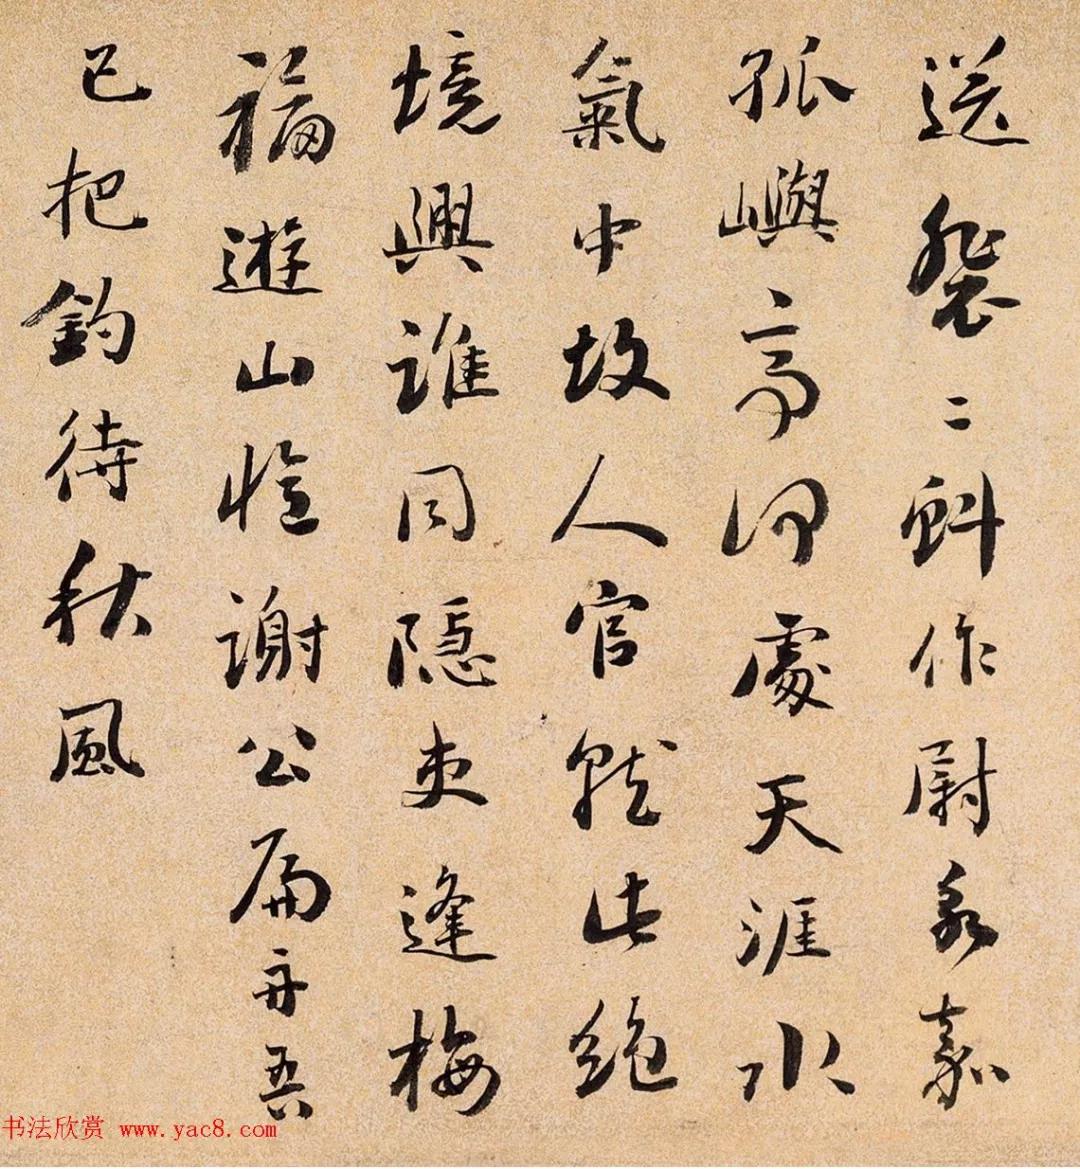 送裴二蚪作尉永嘉
孤嶼亭何處天涯水
氣中故人官就此絶
境興誰同隱吏逢梅
福遊山憶謝公扁舟吾
已把釣待秋風
书法欣赏 www.yac8.com